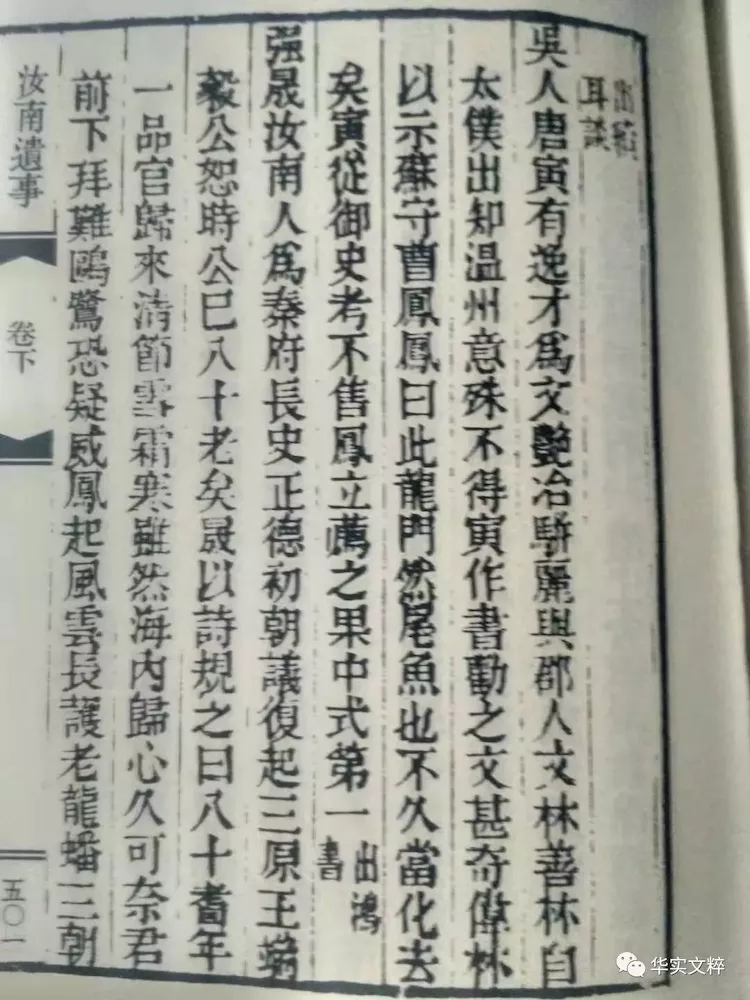 出續
耳談
吳人唐寅有逸才爲文艷冶駢麗與郡人文林善林自
太僕出知温州意殊不得寅作書勸之文甚奇偉林
以示蘇守曹鳳鳳曰此龍門然尾魚也不久當化去
矣寅從御史考不售鳳立薦之果中式第一出鴻書
强晟汝南人爲秦府長史正德初朝議復起三原王端
毅公恕時公已八十老矣晟以詩規之曰八十耆年
一品官歸來清節雪霜寒雖然海内歸心久可奈君
前下拜難鷗鷺恐疑威鳳起風雲長護老龍蟠三朝
汝南遺事
卷下
五〇一
华实文粹